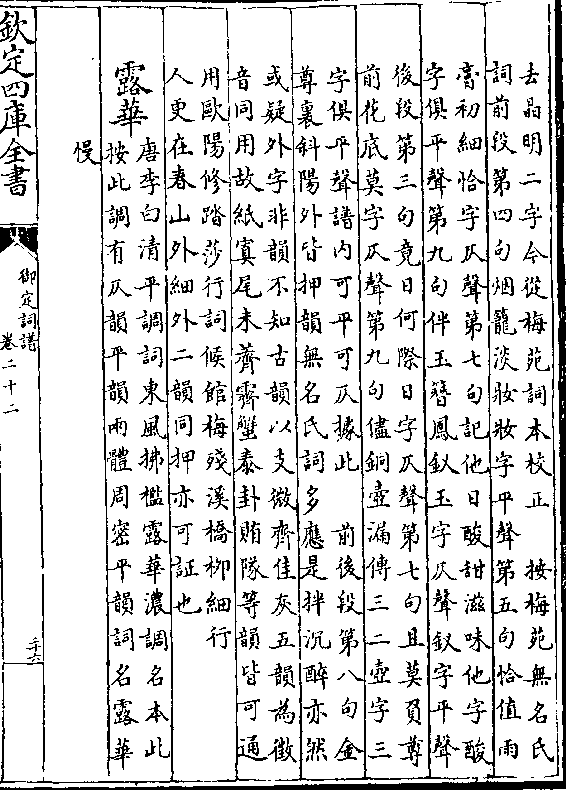 去晶明二字今從梅苑詞本校正　按梅苑無名氏
詞前段第四句烟籠淡妝妝字平聲第五句恰值雨
膏初細恰字仄聲第七句記他日酸甜滋味他字酸
字俱平聲第九句伴玉簪鳳釵玉字仄聲釵字平聲
後段第三句竟日何際日字仄聲第七句且莫負尊
前花底莫字仄聲第九句儘銅壺漏傳三二壺字三
字俱平聲譜內可平可仄據此　前後段第八句金
尊裏斜陽外皆押韻無名氏詞多應是拌沉醉亦然
或疑外字非韻不知古韻以支微齊佳灰五韻為徵
音同用故紙寘尾未薺霽蟹泰卦賄隊等韻皆可通
用歐陽修踏莎行詞候館梅殘溪橋柳細行
人更在春山外細外二韻同押亦可証也
露華
唐李白清平調詞東風拂檻露華濃調名本此
按此調有仄韻平韻兩體周密平韻詞名露華
慢
欽定四庫全書
御定詞譜
卷二十二
二十六